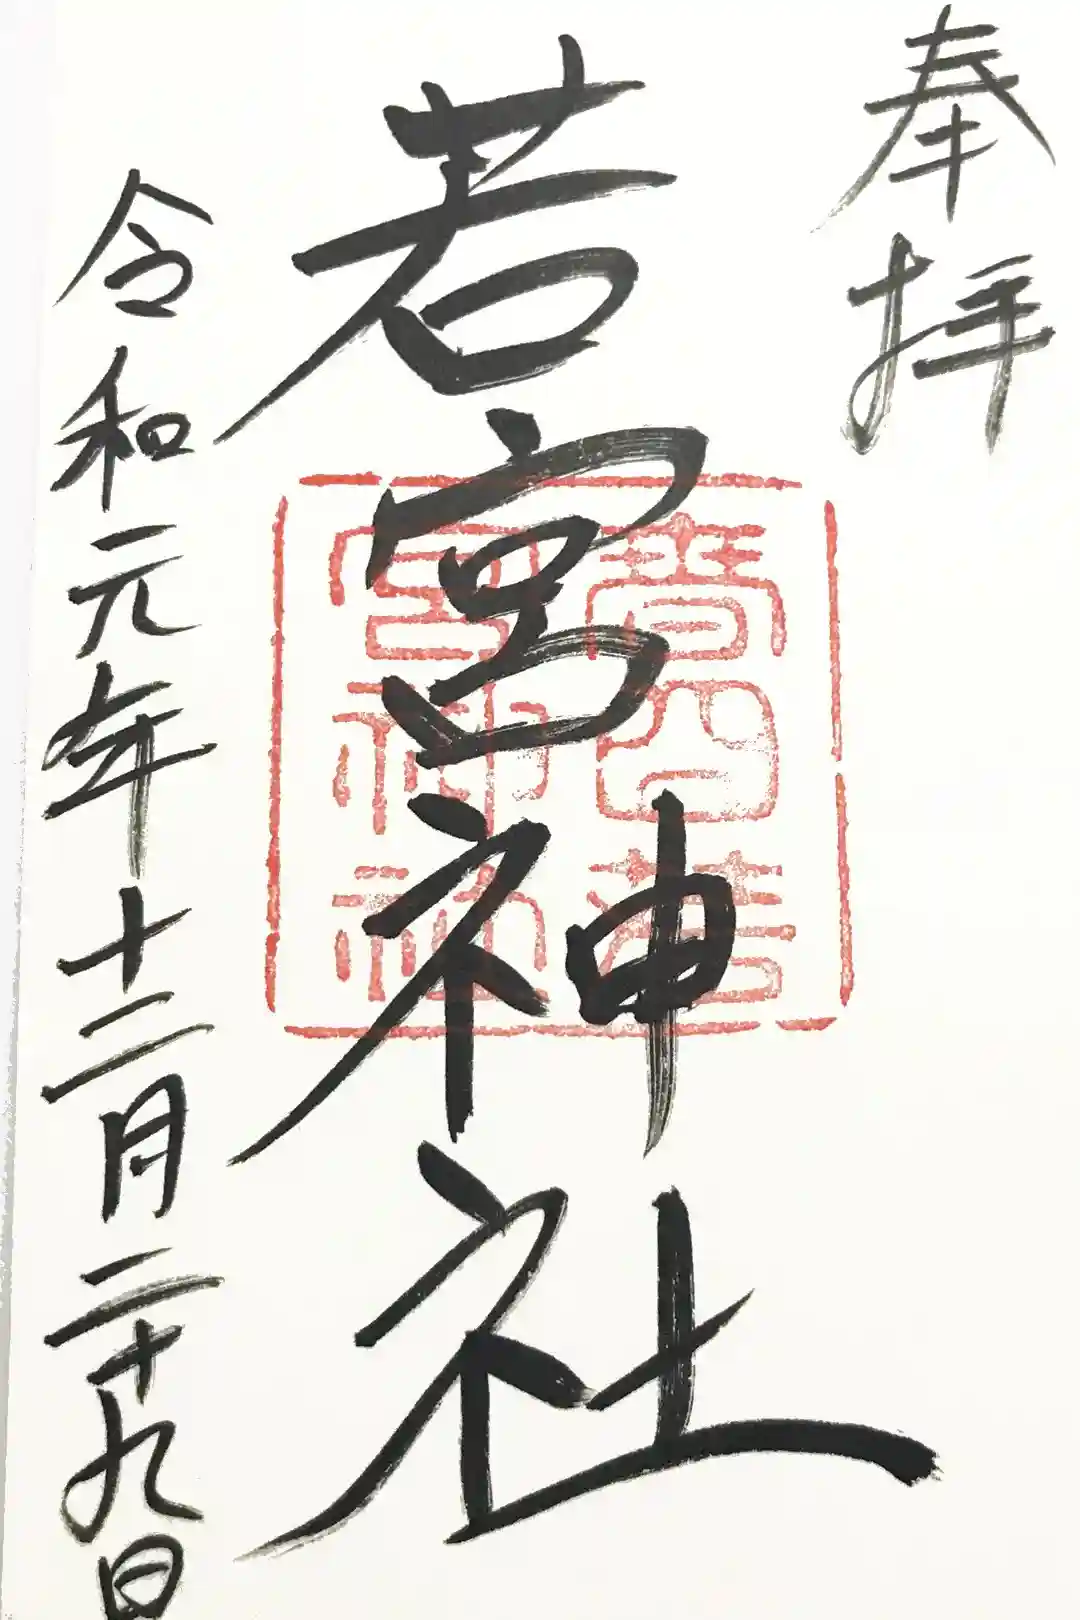 奉拝
若宮神社
令和元年十二月二十九日